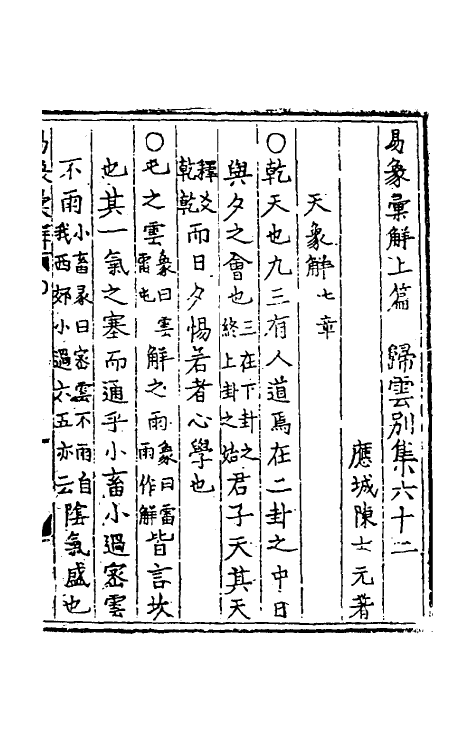 易象彙解上篇　歸雲別集六十二
應城陳士元著
天象解七章
○乾天也九三有人道焉在二卦之中日
與夕之會也三在下卦之終上卦之始君子天其天
釋爻乾乾而日夕惕若者心學也
○屯之雲象曰雲雷屯解之雨象曰雷雨作解皆言坎
也其一氣之塞而通乎小畜小過密雲
不雨小畜彖曰密雲不雨自我西郊小過六五亦云陰氣盛也